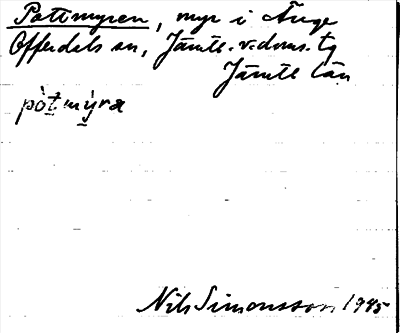 Pottmyren, myr i Ånge
Offerdals sn, Jämtl. v. doms. tg
Jämtl län
pòtmýra
Nils Simonsson 1945